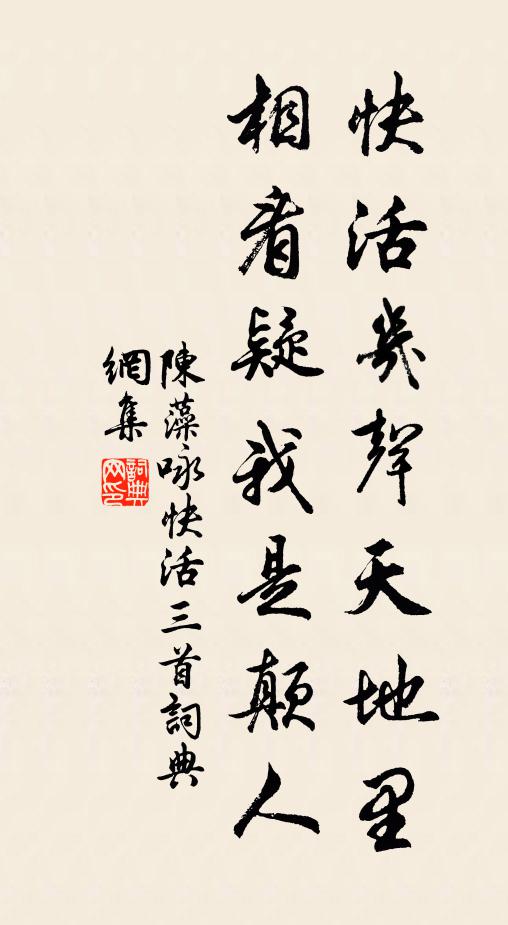 快活幾聲天地里
相看疑我是顛人
陳藻咏快活三首詞典
網集
詞典網印